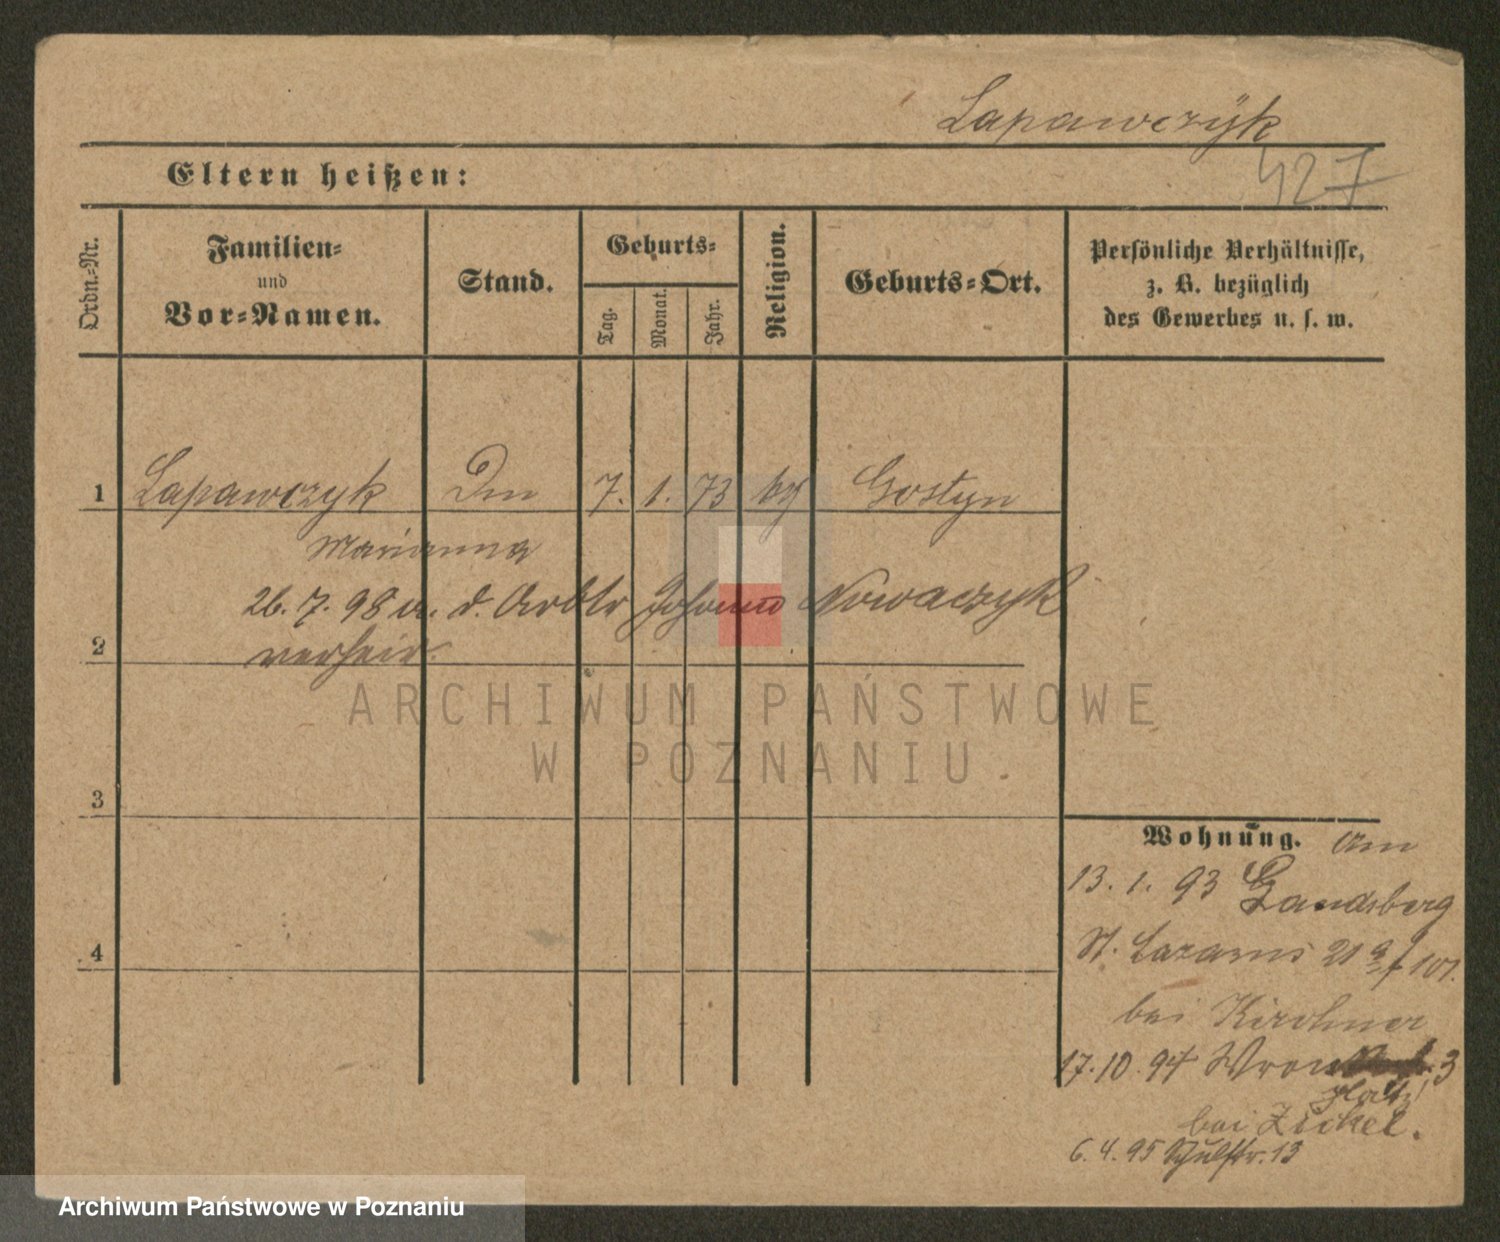 Lapawczÿk
427
Eltern heißen:
Ordn.-Nr.
Familien-
und
Vor-Namen.
Stand.
Geburts-
Tag.
Monat.
Jahr.
Religion.
Geburts-Ort.
Persönliche Verhältnisse,
z. B. bezüglich
des Gewerbes u. s. w.
1 Lapawczyk 7. 1. 73 Gostyn
Marianna
26. 7. 98 d. Johann Nowaczyk
2 verheir.
ARCHIWUM PAŃSTWOWE
W POZNANIU.
3
Wohnung.
13. 1. 93 Landsberg
4 St. Lazarus 21
bei Kirchner
17. 10. 94 3
platz
bei Zickel.
6. 4. 95 Schulstr. 13
Archiwum Państwowe w Poznaniu